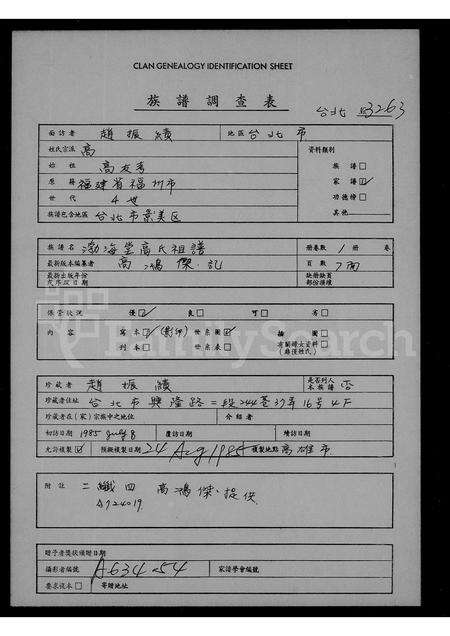 CLAN GENEALOGY IDENTIFICATION SHEET
族譜調查表
台北 3263
面訪者 趙振績 地區 台北市
姓氏宗派 高 資料類別
始祖 高友秀 族譜□
原籍 福建省福州市 家譜☑
世代 4世 功德榜□
族譜包含地區 台北市景美區 其他
譜名 渤海堂高氏祖譜 冊卷數 1 冊 卷
最新版本編纂者 高鴻傑.記 頁數 7面
最新出版年份或序跋日期 缺冊缺頁部份須續
保管狀況 優☑ 良□ 可□ 劣□
內容 寫本☑(影印) 世系圖☑ 插圖□
刊本□ 世系表□ 有關婦女資料(除漢姓氏)□
珍藏者 趙振績 是否列入本族譜 否
珍藏者住址 台北市興隆路二段244巷37弄16号4F
珍藏者在(家)宗族中之地位 介紹者
初訪日期 1985 July 8 覆訪日期 續訪日期
允許複製☑ 預擬複製日期 24 Aug 1985 複製地點 高雄市
附註 高鴻傑.提供
A724019
贈予者獎狀稱贈日期
攝影者編號 A634-54 家譜學會編號
要求副本□ 寄贈地址
FamilySearch